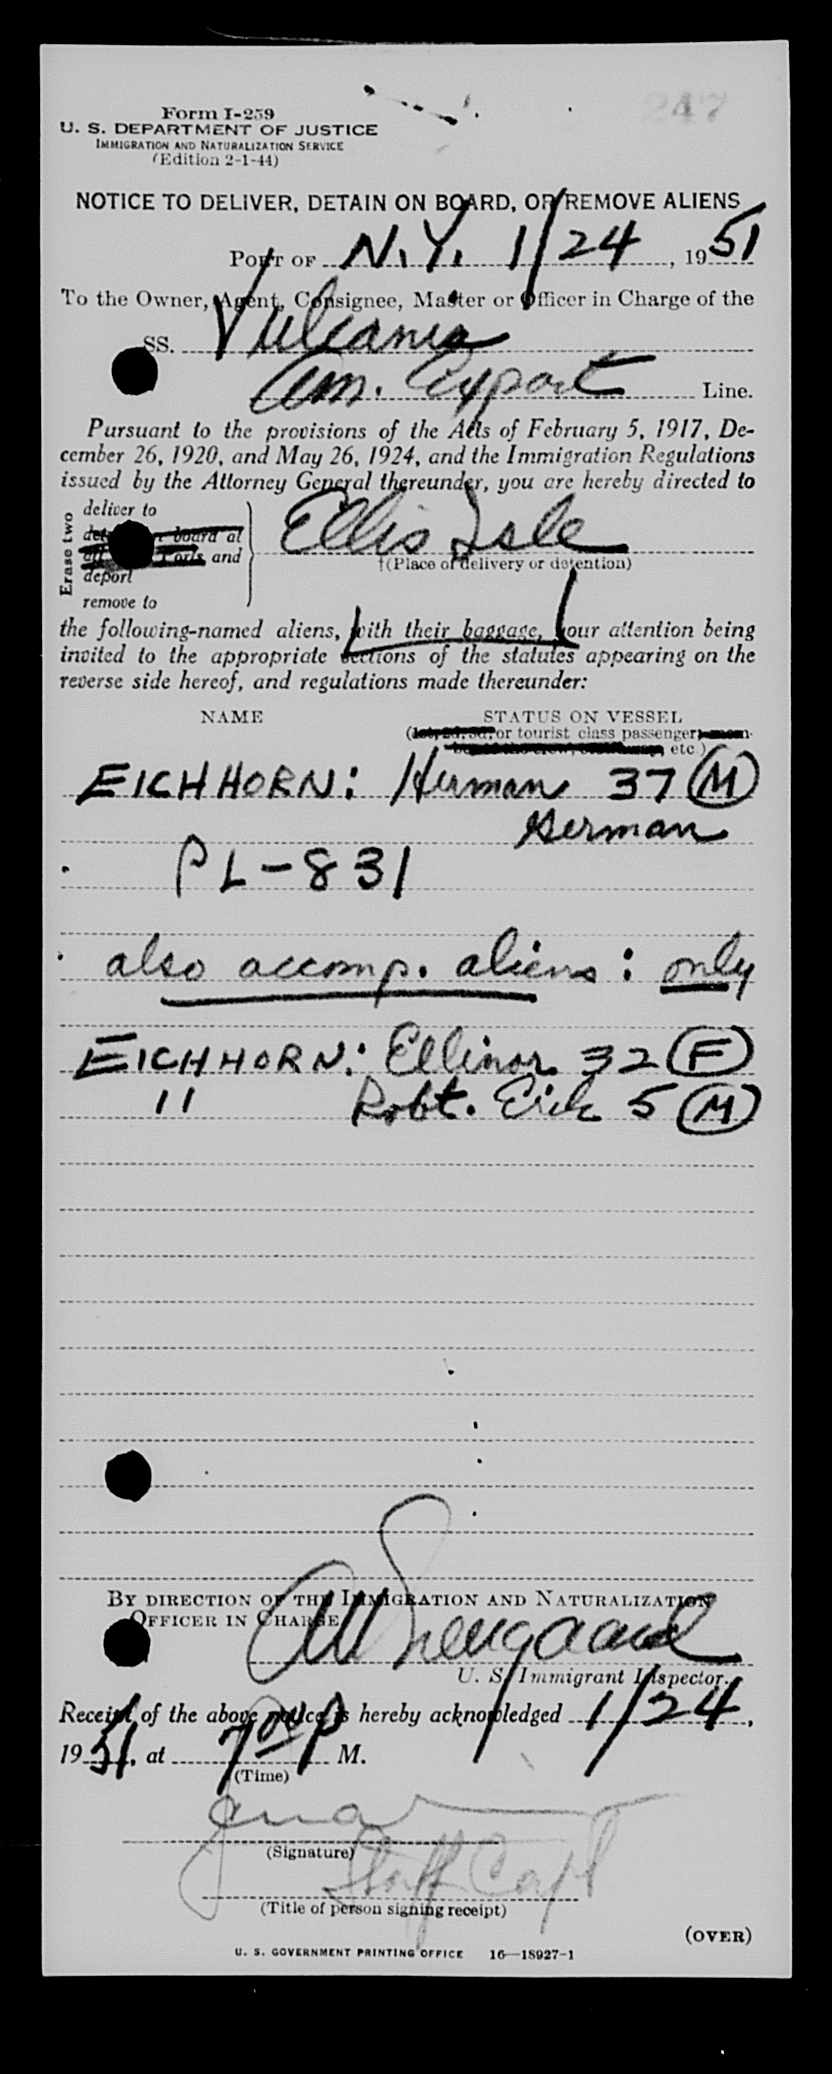 247
Form I-259
U. S. DEPARTMENT OF JUSTICE
IMMIGRATION AND NATURALIZATION SERVICE
(Edition 2-1-44)
NOTICE TO DELIVER, DETAIN ON BOARD, OR REMOVE ALIENS
PORT OF N.Y. 1/24, 1951
To the Owner, Agent, Consignee, Master or Officer in Charge of the
SS. Vulcania
Am. Export Line.
Pursuant to the provisions of the Acts of February 5, 1917, De-
cember 26, 1920, and May 26, 1924, and the Immigration Regulations
issued by the Attorney General thereunder, you are hereby directed to
Erase two
deliver to
board at
and
deport
remove to
Ellis Isle
†(Place of delivery or detention)
the following-named aliens, with their baggage, your attention being
invited to the appropriate sections of the statutes appearing on the
reverse side hereof, and regulations made thereunder:
NAME STATUS ON VESSEL
(1st, 2d, 3d, or tourist class passenger, mem-
etc.)
EICHHORN: Herman 37 M
German
PL-831
also accomp. aliens: only
EICHHORN: Ellinor 32 F
" Robt. Erik 5 M
BY DIRECTION OF THE IMMIGRATION AND NATURALIZATION
OFFICER IN CHARGE
U. S. Immigrant Inspector.
Receipt of the above notice is hereby acknowledged 1/24,
1951, at 700 P M.
(Time)
(Signature)
Staff Capt
(Title of person signing receipt)
(OVER)
U. S. GOVERNMENT PRINTING OFFICE 16—18927-1